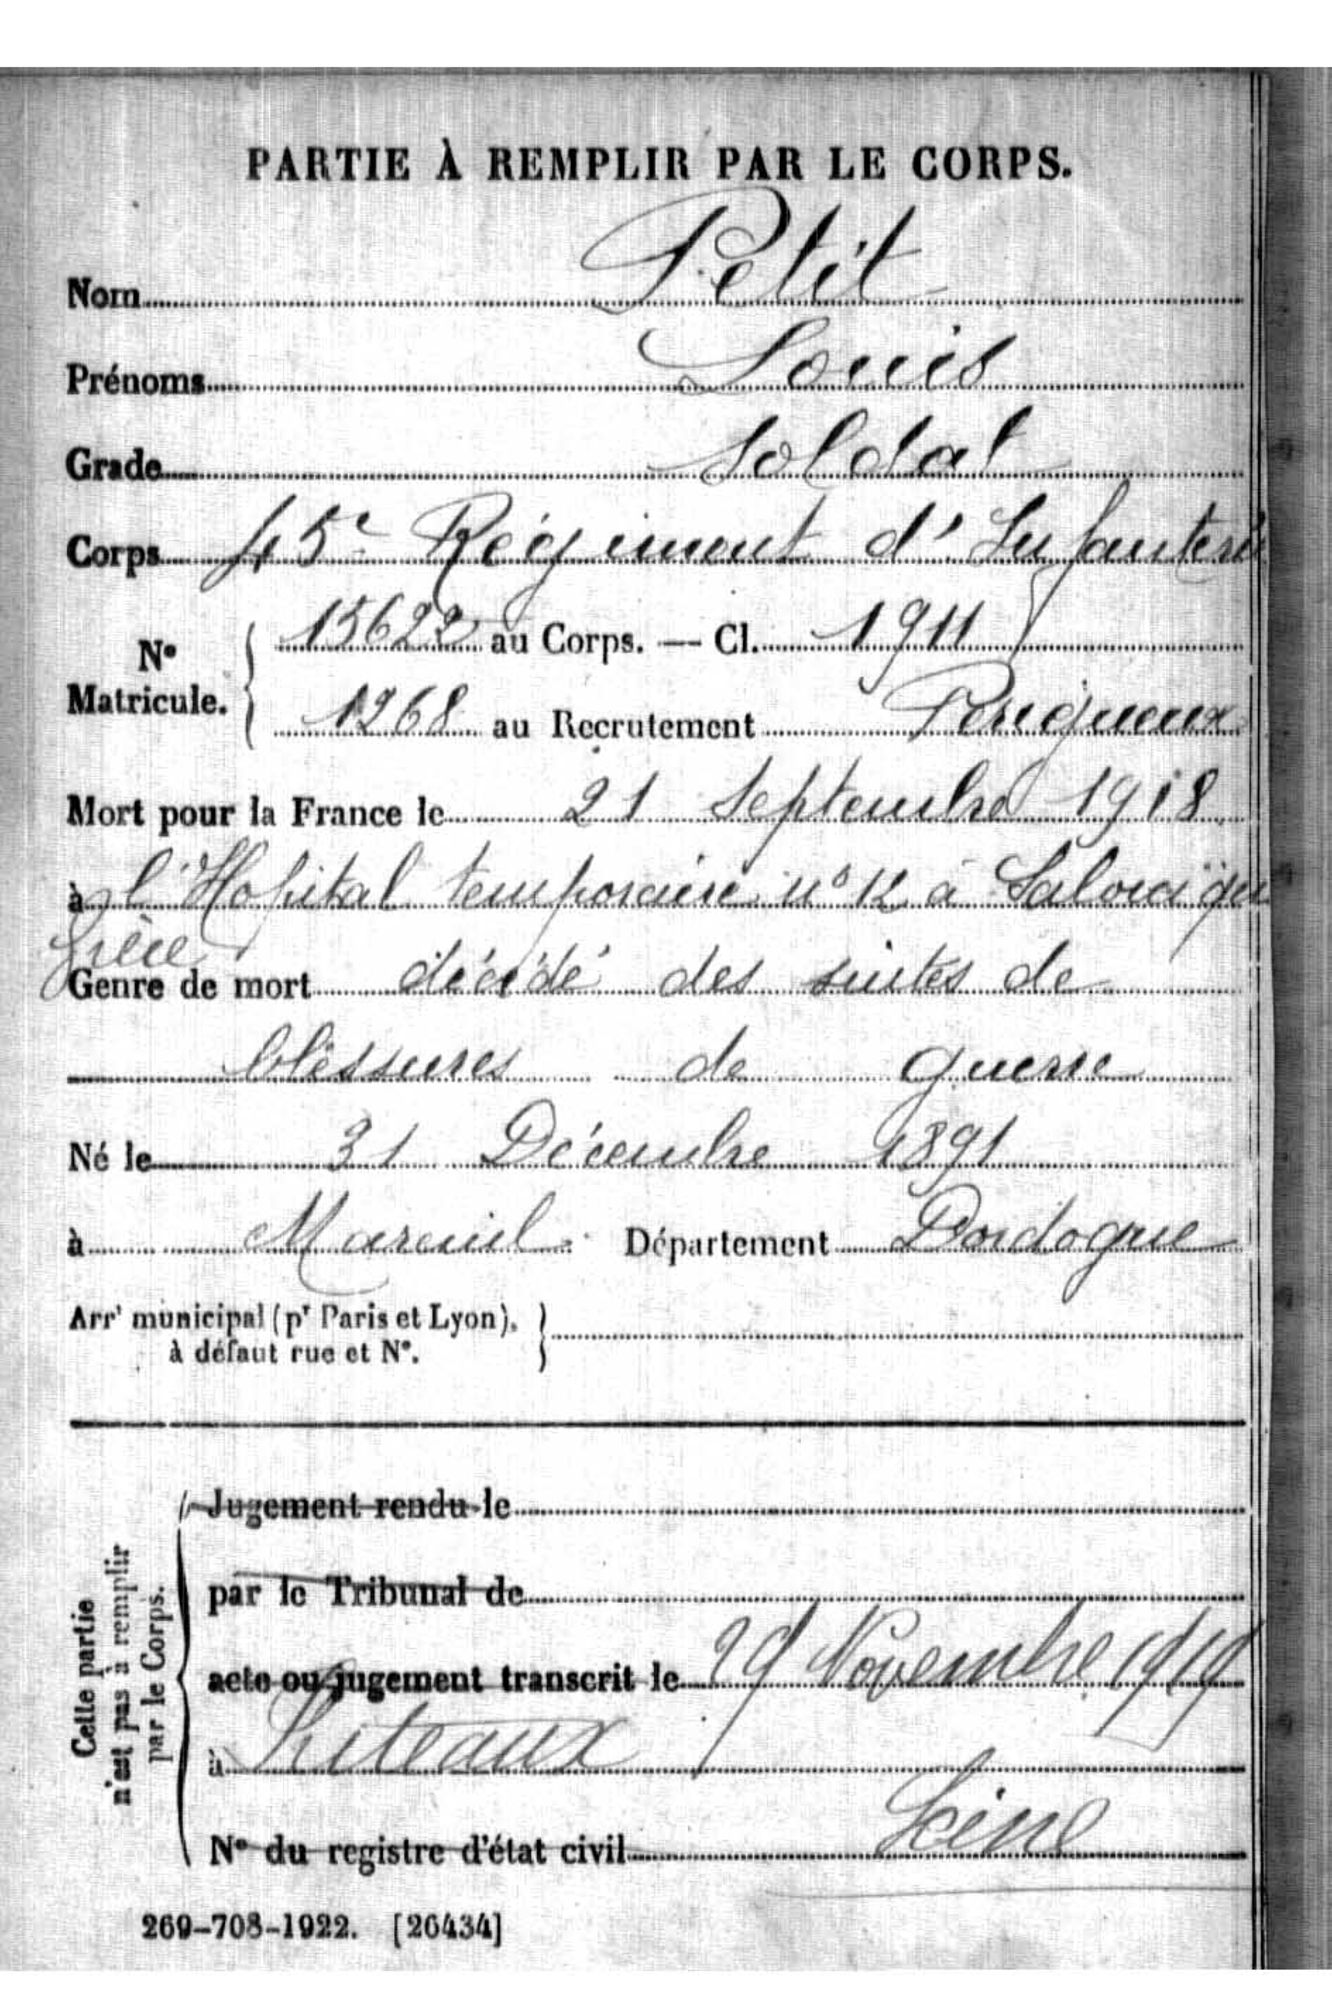 PARTIE À REMPLIR PAR LE CORPS.
Nom Petit
Prénoms Louis
Grade Soldat
Corps 45e Régiment d'Infanterie
N° Matricule. 15622 au Corps. — Cl. 1911
1268 au Recrutement Perigueux
Mort pour la France le 21 Septembre 1918
à l'Hopital temporaire n° 12 à Salonique
Grèce
Genre de mort décédé des suites de
bléssures de guerre
Né le 31 Décembre 1891
à Mareuil Département Dordogne
Arrt municipal (pr Paris et Lyon),
à défaut rue et N°.
Cette partie
n'est pas à remplir
par le Corps.
Jugement rendu le
par le Tribunal de
acte ou jugement transcrit le 29 Novembre 1919
à Puteaux
Seine
N° du registre d'état civil
269-708-1922. [26434]